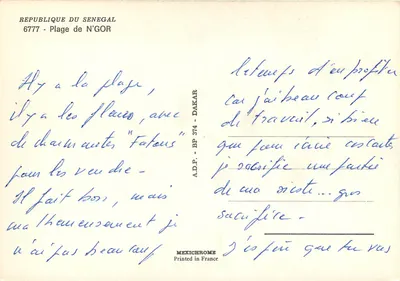 REPUBLIQUE DU SENEGAL
6777 - Plage de N'GOR
Il y a la plage,
il y a les fleurs, avec
de charmantes "Fatous"
pour les vendre.
Il fait bon, mais
malheureusement je
n'ai pas beaucoup
A.D.P. - BP 374 - DAKAR
MEXICHROME
Printed in France
le temps d'en profiter
car j'ai beaucoup
de travail, si bien
que pour écrire ces cartes
je sacrifie une partie
de ma sieste... gros
sacrifice.
J'espère que tu vas